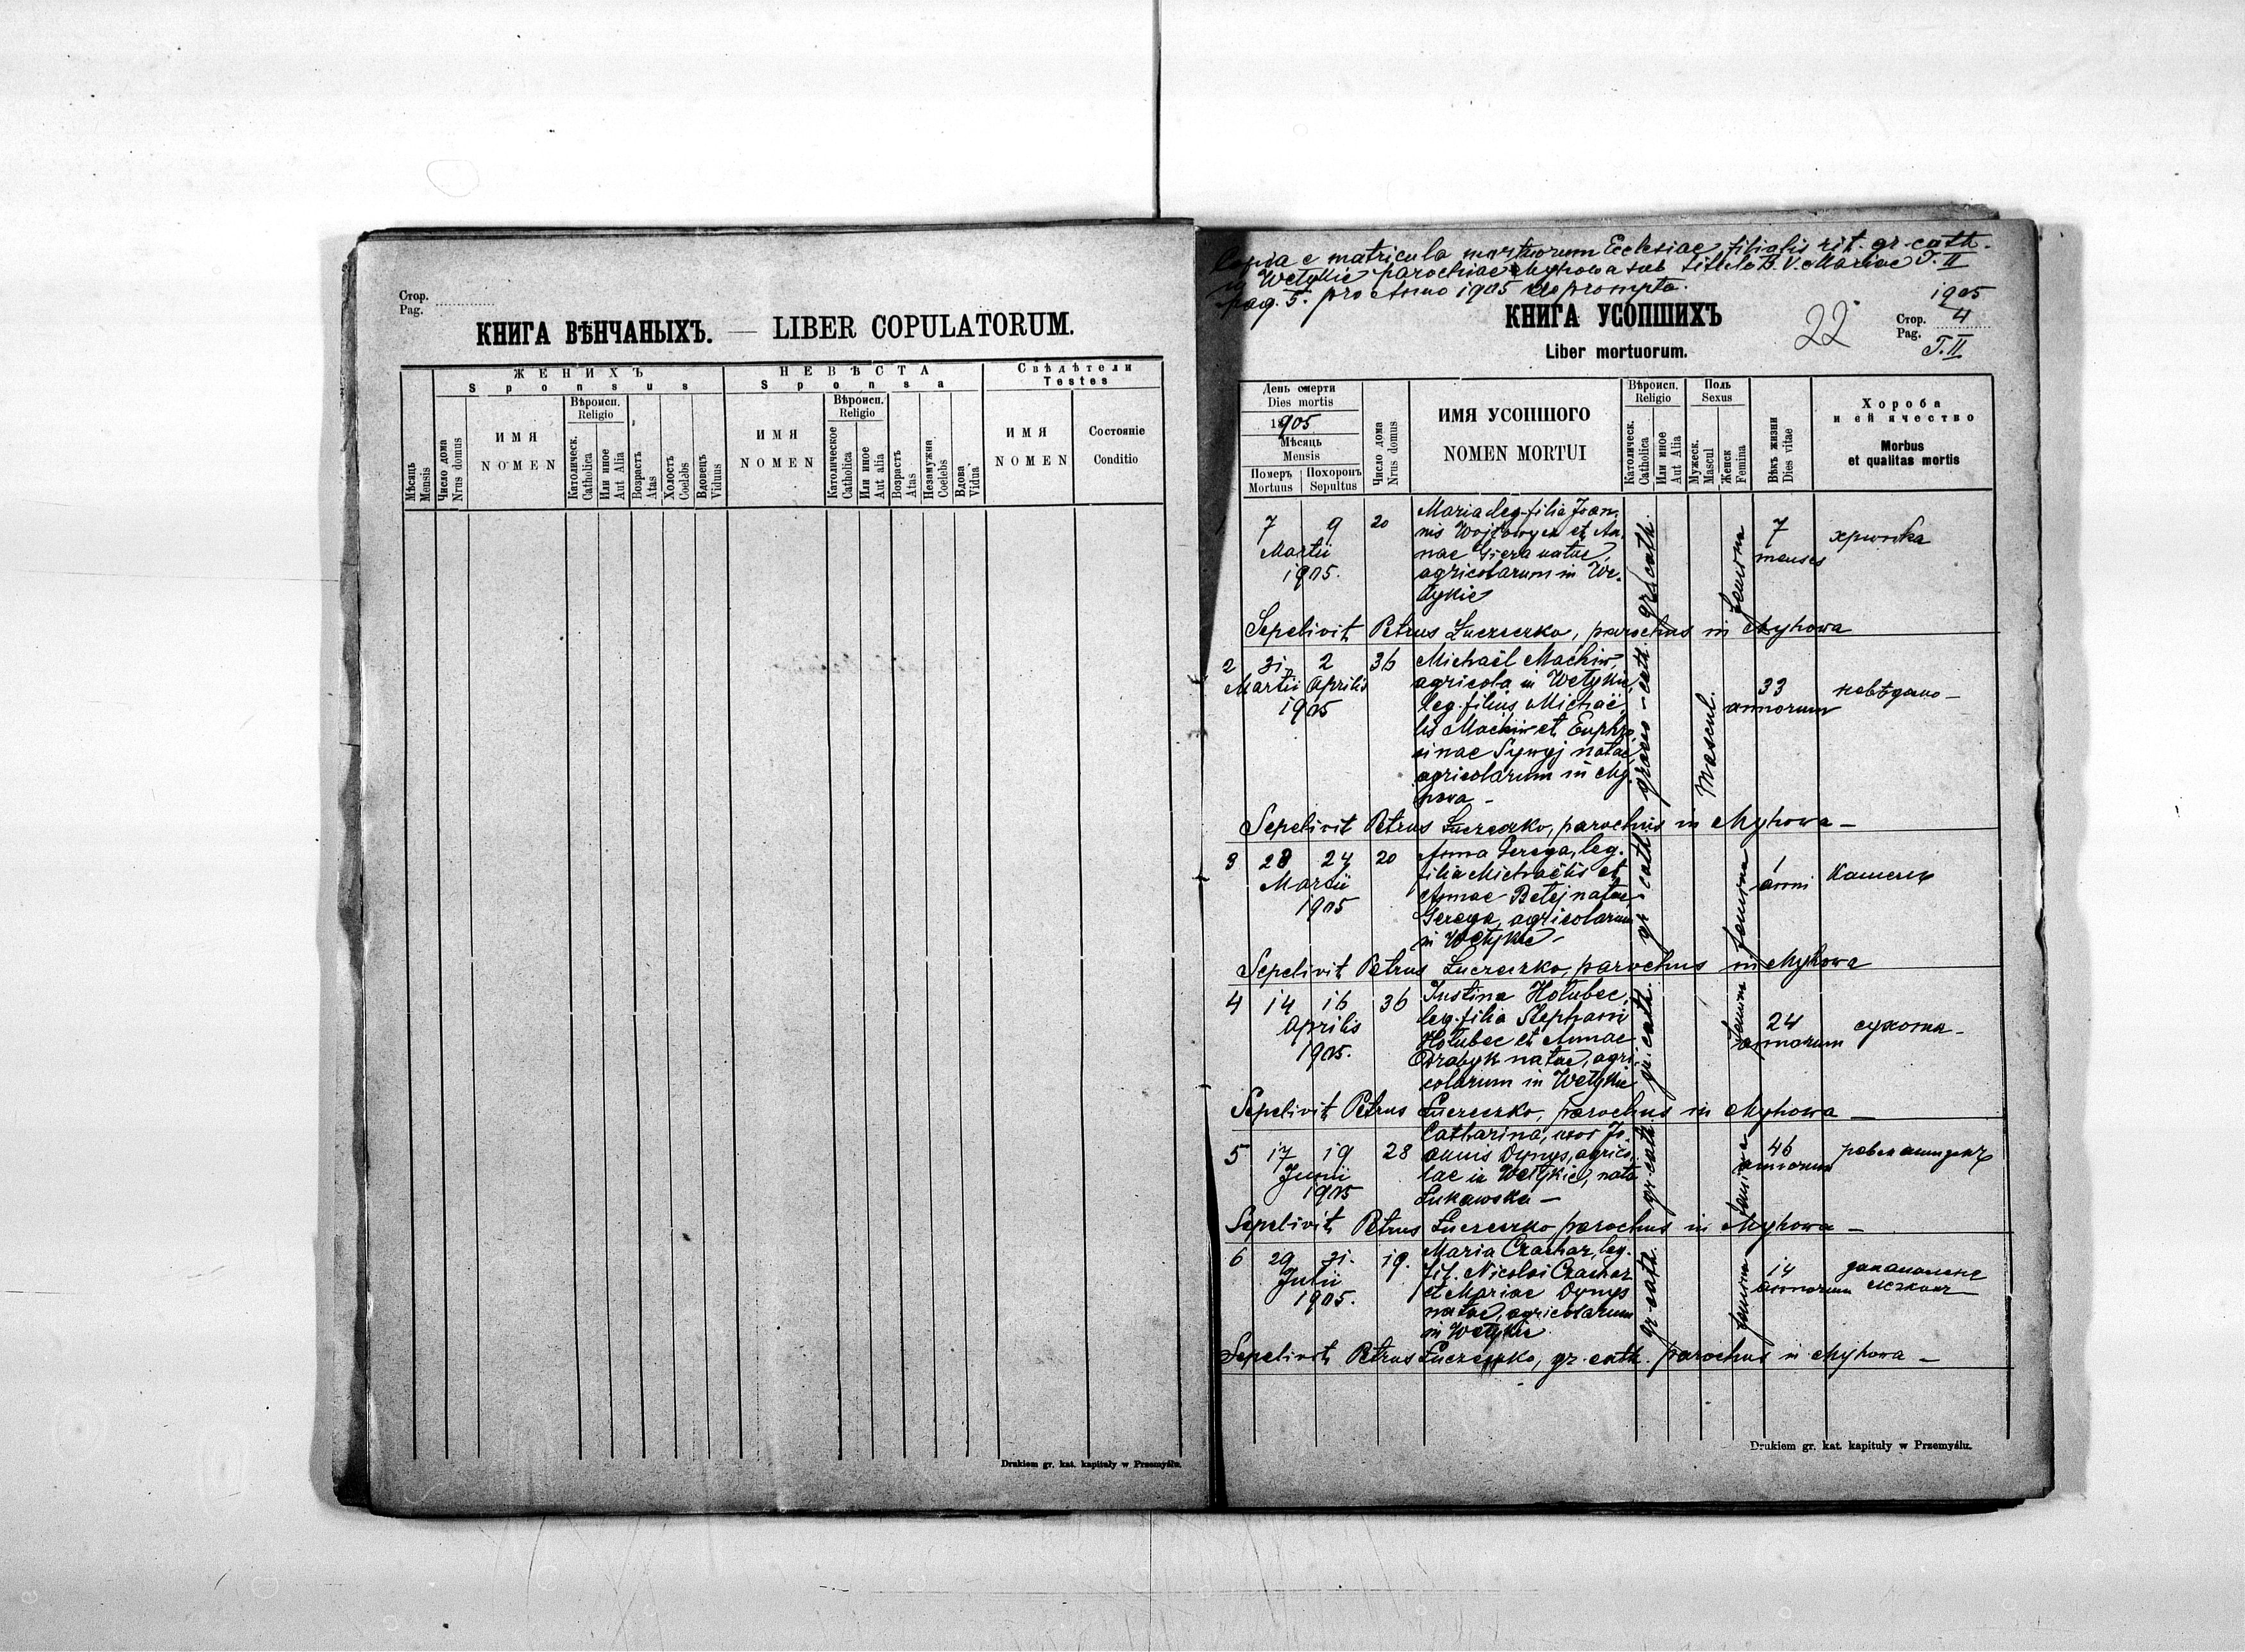 Стор.
Pag.
КНИГА ВѢНЧАНЫХЪ. — LIBER COPULATORUM.
ЖЕНИХЪ
Sponsus
НЕВѢСТА
Sponsa
Свѣдѣтели
Testes
Мѣсяць
Mensis
Число дома
Nrus domus
ИМЯ
NOMEN
Вѣроисп.
Religio
Католическ.
Catholica
Или иное
Aut Alia
Возрастъ
Atas
Холость
Coelebs
Вдовець
Viduus
ИМЯ
NOMEN
Вѣроисп.
Religio
Католическое
Catholica
Или иное
Aut alia
Возрасть
Atas
Незамужна
Coelebs
Вдова
Vidua
ИМЯ
NOMEN
Состояніе
Conditio
Drukiem gr. kat. kapituły w Przemyślu.
Copia e matricula mortuorum Ecclesiae filialis rit. gr. cath.
in Wetykie parochiae Myhowa sub titulo B. V. Mariae T. II
pag. 5. pro Anno 1905 deprompta.
КНИГА УСОПШИХЪ
Liber mortuorum.
22
1905
Стор. 4
Pag.
T. II
День смерти
Dies mortis
1905
Мѣсяць
Mensis
Померъ
Mortuus
Похоронъ
Sepultus
Число дома
Nrus domus
ИМЯ УСОПШОГО
NOMEN MORTUI
Вѣроисп.
Religio
Католическ.
Catholica
Или иное
Aut Alia
Поль
Sexus
Мужеск.
Mascul
Женск
Femina
Вѣкъ жизни
Dies vitae
Хороба
и ей ячество
Morbus
et qualitas mortis
7 9 20
Martii
1905.
Maria leg. filia Joan-
nis Wojtowycz et An-
nae natae,
agricolarum in We-
tykie
gr. cath.
femina
7
menses
Sepelivit Petrus Łuczeczko, parochus in Myhowa
2 31 2 36
Martii Aprilis
1905
Michaël Machiw,
agricola in Wetykie,
leg. filius Michaë-
lis Machiw et Euphro-
sinae natae,
agricolarum in My-
howa -
graeco-cath.
Mascul.
33
annorum
невѣдомо -
Sepelivit Petrus Łuczeczko, parochus in Myhowa -
3 23 24 20
Martii
1905
Anna Gerega, leg.
filia Michaëlis et
Annae Betej natae,
Gerega, agricolarum
in Wetykie -
gr. cath.
femina
1
anni
Кашель
Sepelivit Petrus Łuczeczko, parochus in Myhowa
4 14 16 36
Aprilis
1905.
Justina Hołubec,
leg. filia Stephani
Hołubec et Annae
natae, agri-
colarum in Wetykie
gr. cath.
femina
24
annorum
сухоты -
Sepelivit Petrus Łuczeczko, parochus in Myhowa -
5 17 19 28
Junii
1905
Catharina, uxor Jo-
annis Dynys, agrico-
lae in Wetykie, nata
Łukawska -
gr. cath.
femina
46
annorum
Sepelivit Petrus Łuczeczko parochus in Myhowa -
6 29 31. 19.
Julii
1905.
Maria Czachar, leg.
fil. Nicolai Czachar
et Mariae Dynys
natae, agricolarum
in Wetykie
gr. cath.
femina
14
annorum
Sepelivit Petrus Łuczeczko, gr. cath. parochus in Myhowa -
Drukiem gr. kat. kapituły w Przemyślu.